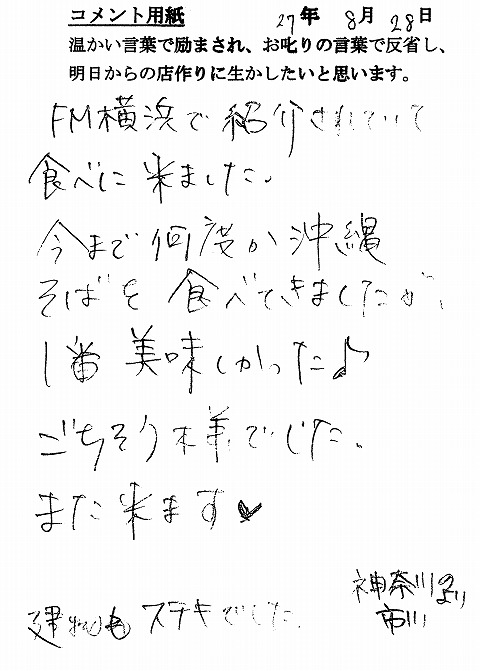 コメント用紙 27年 8月 28日
温かい言葉で励まされ、お叱りの言葉で反省し、
明日からの店作りに生かしたいと思います。
FM横浜で紹介されていて
食べに来ました。
今まで何度か沖縄
そばを食べてきましたが、
1番美味しかった♪
ごちそう様でした。
また来ます♥
建物もステキでした。
神奈川の
市川より